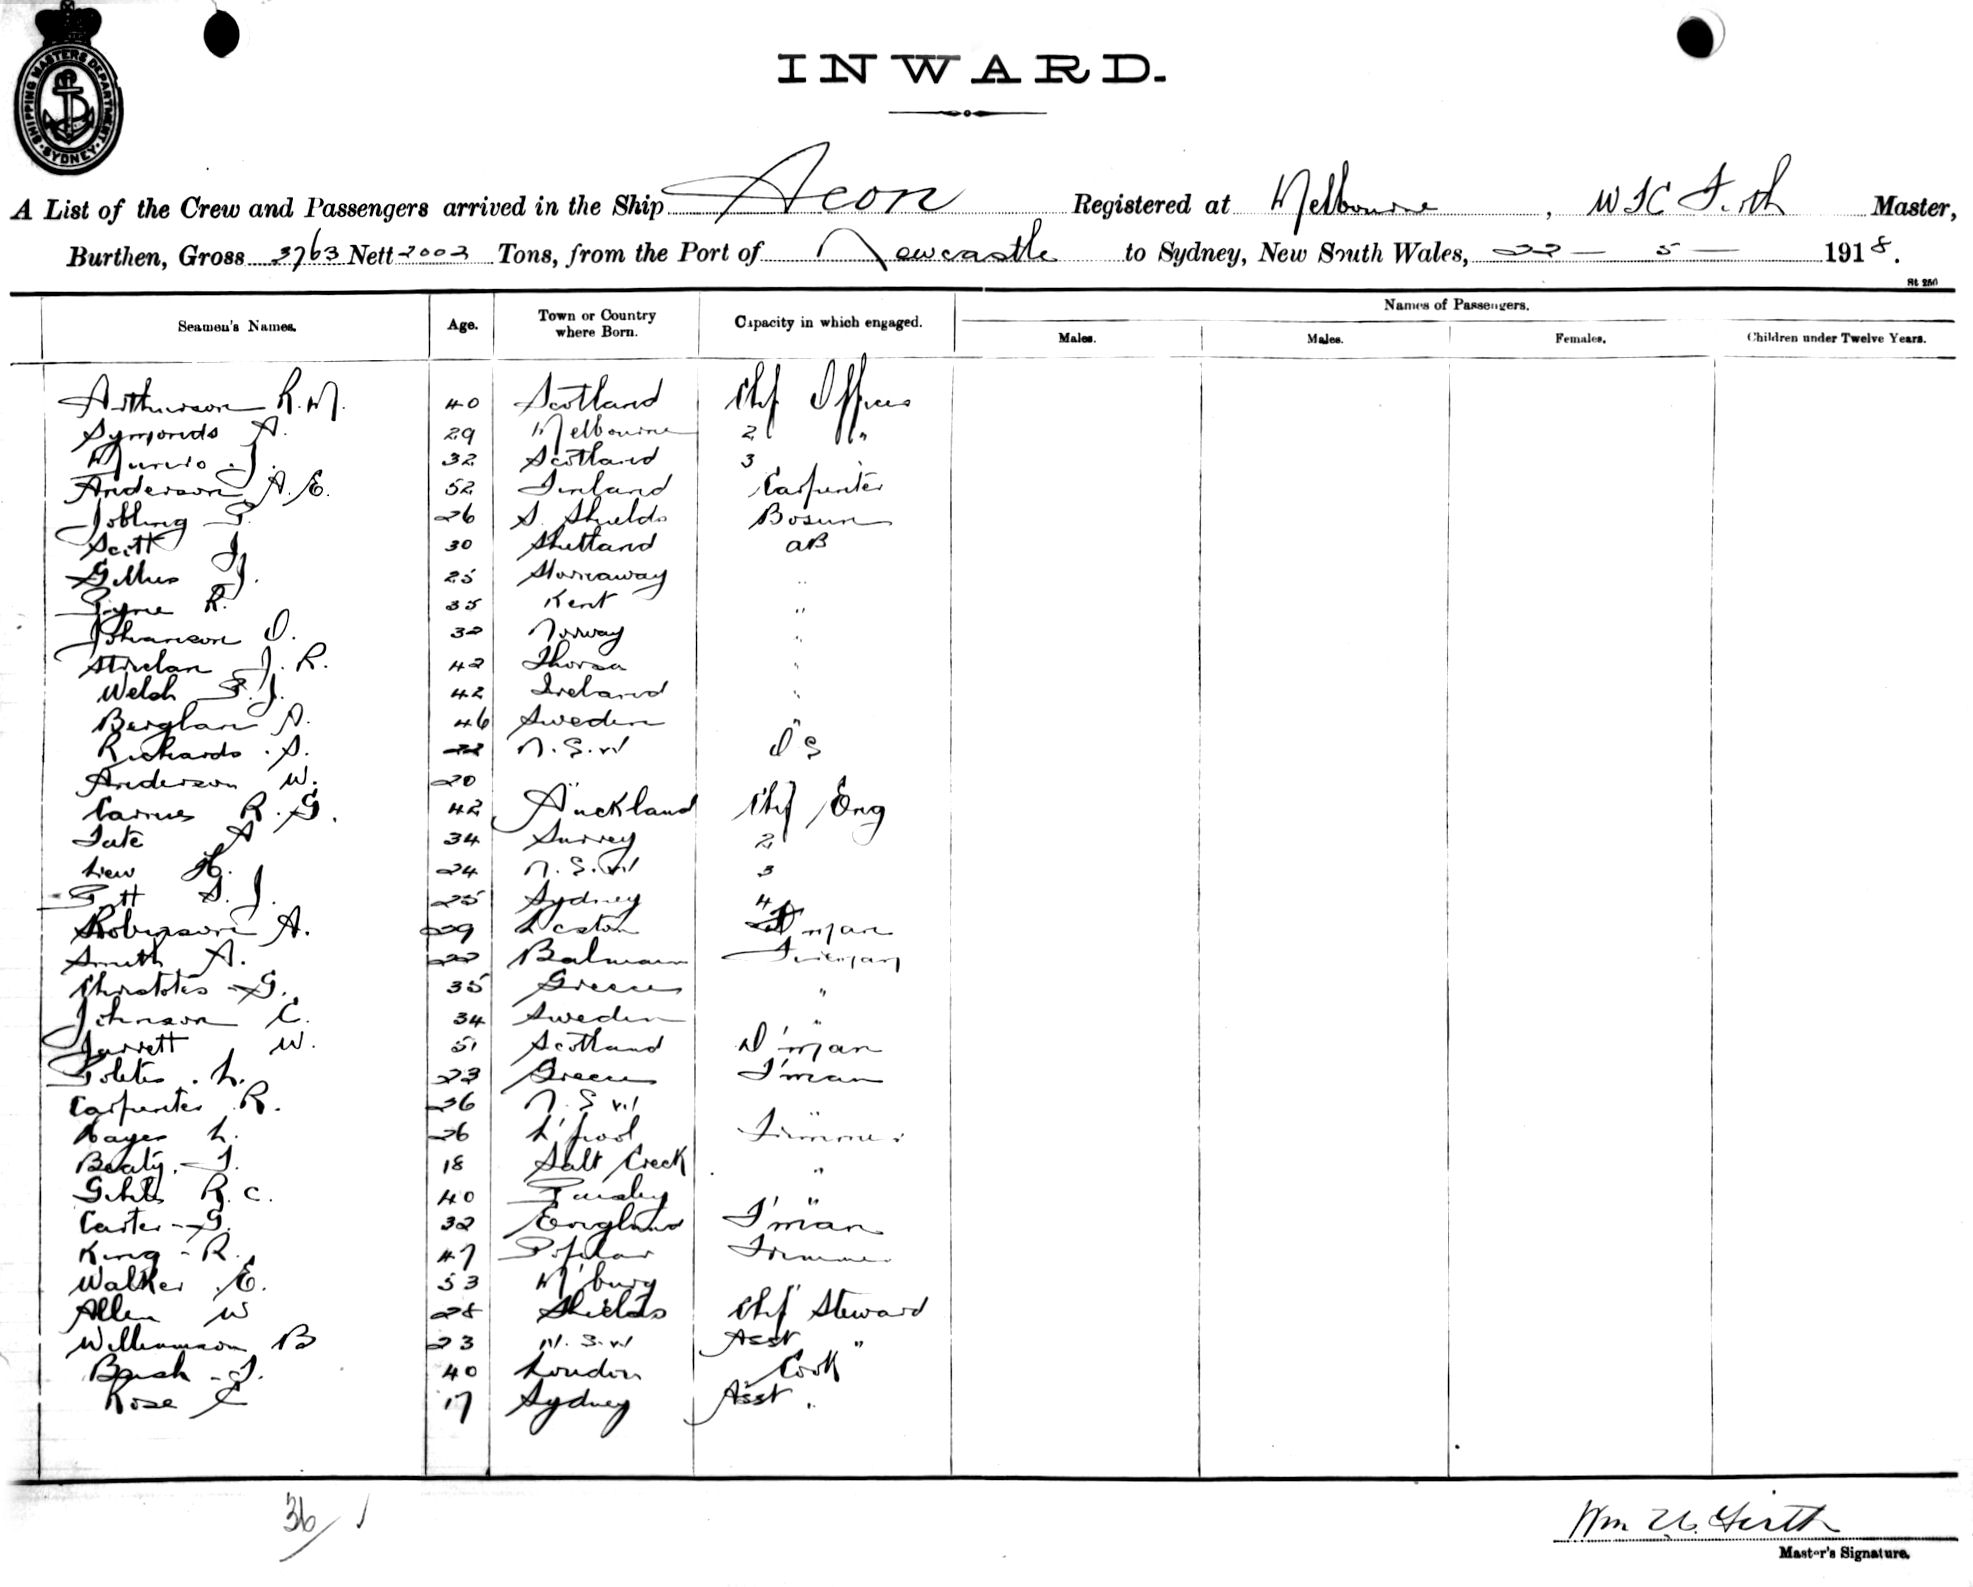 SHIPPING MASTERS DEPARTMENT
SYDNEY
INWARD.
A List of the Crew and Passengers arrived in the Ship Aeon Registered at Melbourne, W Firth Master,
Burthen, Gross 3763 Nett 2002 Tons, from the Port of Newcastle to Sydney, New South Wales, 22 - 5 - 1918.
St 250
Seamen's Names. Age. Town or Country where Born. Capacity in which engaged. Names of Passengers.
Males. Males. Females. Children under Twelve Years.
Arthurson R.M. 40 Scotland Chf Officer
Symonds A. 29 Melbourne 2 "
Munro J. 32 Scotland 3
Anderson A.E. 52 Finland Carpenter
Jobling 26 S. Shields Bosun
Scott J 30 Shetland AB
Gillies J. 25 Stornaway "
Pyne R. 35 Kent "
Johanson O. 32 Norway "
J. R. 42 "
Welch P.J. 42 Ireland "
A. 46 Sweden "
Richards S. 22 N.S.W OS
Anderson W. 20 "
R.G. 42 Auckland Chf Eng
Tate A 34 Surrey 2
Lew H. 24 N.S.W 3
Pitt S.J. 25 Sydney 4
Robinson A. 29 D'man
Smith A. 22 Balmain Fireman
G. 35 Greece "
Johnson C. 34 Sweden "
Jarrett W. 51 Scotland D'man
L. 23 Greece F'man
Carpenter R. 26 N.S.W "
Hayes L. 26 L'pool Trimmer
Beaty T. 18 Salt Creek "
R.C. 40 Paisley "
Carter G. 32 England F'man
King R. 47 Poplar Trimmer
Walker E. 53 M'burg "
Allen W 28 Shields Chf Steward
Williamson B 23 N.S.W Asst "
Bush T. 40 London Cook
Rose C 17 Sydney Asst "
36/1
Wm Firth
Master's Signature.